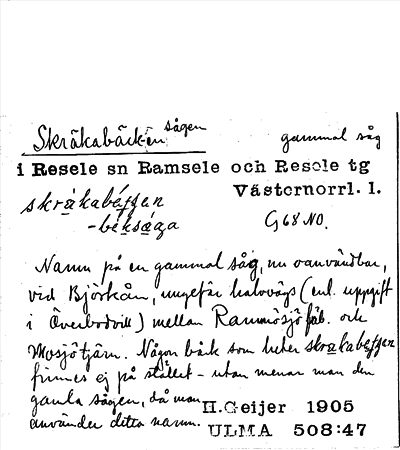 Skråkabäcken sågen gammal såg
i Resele sn Ramsele och Resele tg
Västernorrl. l.
skråkabéççen
-béksåga G 68 NO.
Namn på en gammal såg, nu oanvändbar,
vid Björkån, ungefär halvvägs (enl. uppgift
i Överbodvill) mellan Rammsjö fäb. och
Mosjötjärn. Någon bäck som heter skråkabéççen
finnes ej på stället – utan menar man den
gamla sågen, då man
använder detta namn.
H.Geijer 1905
ULMA 508:47